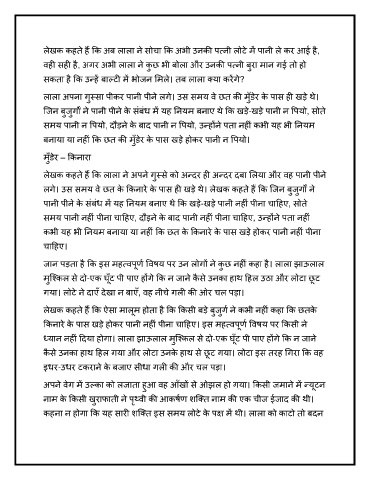 लेखक कहते हैं कि अब लाला ने सोचा कि अभी उनकी पत्नी लोटे में पानी ले कर आई है,
वही सही है, अगर अभी लाला ने कुछ भी बोला और उनकी पत्नी बुरा मान गई तो हो
सकता है कि उन्हें बाल्टी में भोजन मिले। तब लाला क्या करेंगे?
लाला अपना गुस्सा पीकर पानी पीने लगे। उस समय वे छत की मुँडेर के पास ही खड़े थे।
जिन बुजुर्गों ने पानी पीने के संबंध में यह नियम बनाए थे कि खड़े-खड़े पानी न पियो, सोते
समय पानी न पियो, दौड़ने के बाद पानी न पियो, उन्होंने पता नहीं कभी यह भी नियम
बनाया या नहीं कि छत की मुँडेर के पास खड़े होकर पानी न पियो।
मुँडेर – किनारा
लेखक कहते हैं कि लाला ने अपने गुस्से को अन्दर ही अन्दर दबा लिया और वह पानी पीने
लगे। उस समय वे छत के किनारे के पास ही खड़े थे। लेखक कहते हैं कि जिन बुजुर्गों ने
पानी पीने के संबंध में यह नियम बनाए थे कि खड़े-खड़े पानी नहीं पीना चाहिए, सोते
समय पानी नहीं पीना चाहिए, दौड़ने के बाद पानी नहीं पीना चाहिए, उन्होंने पता नहीं
कभी यह भी नियम बनाया या नहीं कि छत के किनारे के पास खड़े होकर पानी नहीं पीना
चाहिए।
जान पड़ता है कि इस महत्वपूर्ण विषय पर उन लोगों ने कुछ नहीं कहा है। लाला झाऊलाल
मुश्किल से दो-एक घूँट पी पाए होंगे कि न जाने कैसे उनका हाथ हिल उठा और लोटा छूट
गया। लोटे ने दाएँ देखा न बाएँ, वह नीचे गली की ओर चल पड़ा।
लेखक कहते हैं कि ऐसा मालूम होता है कि किसी बड़े बुजुर्ग ने कभी नहीं कहा कि छतके
किनारे के पास खड़े होकर पानी नहीं पीना चाहिए। इस महत्वपूर्ण विषय पर किसी ने
ध्यान नहीं दिया होगा। लाला झाऊलाल मुश्किल से दो-एक घूँट पी पाए होंगे कि न जाने
कैसे उनका हाथ हिल गया और लोटा उनके हाथ से छूट गया। लोटा इस तरह गिरा कि वह
इधर-उधर टकराने के बजाए सीधा गली की और चल पड़ा।
अपने वेग में उल्का को लजाता हुआ वह आँखों से ओझल हो गया। किसी जमाने में न्यूटन
नाम के किसी खुराफाती ने पृथ्वी की आकर्षण शक्ति नाम की एक चीज ईजाद की थी।
कहना न होगा कि यह सारी शक्ति इस समय लोटे के पक्ष में थी। लाला को काटो तो बदन